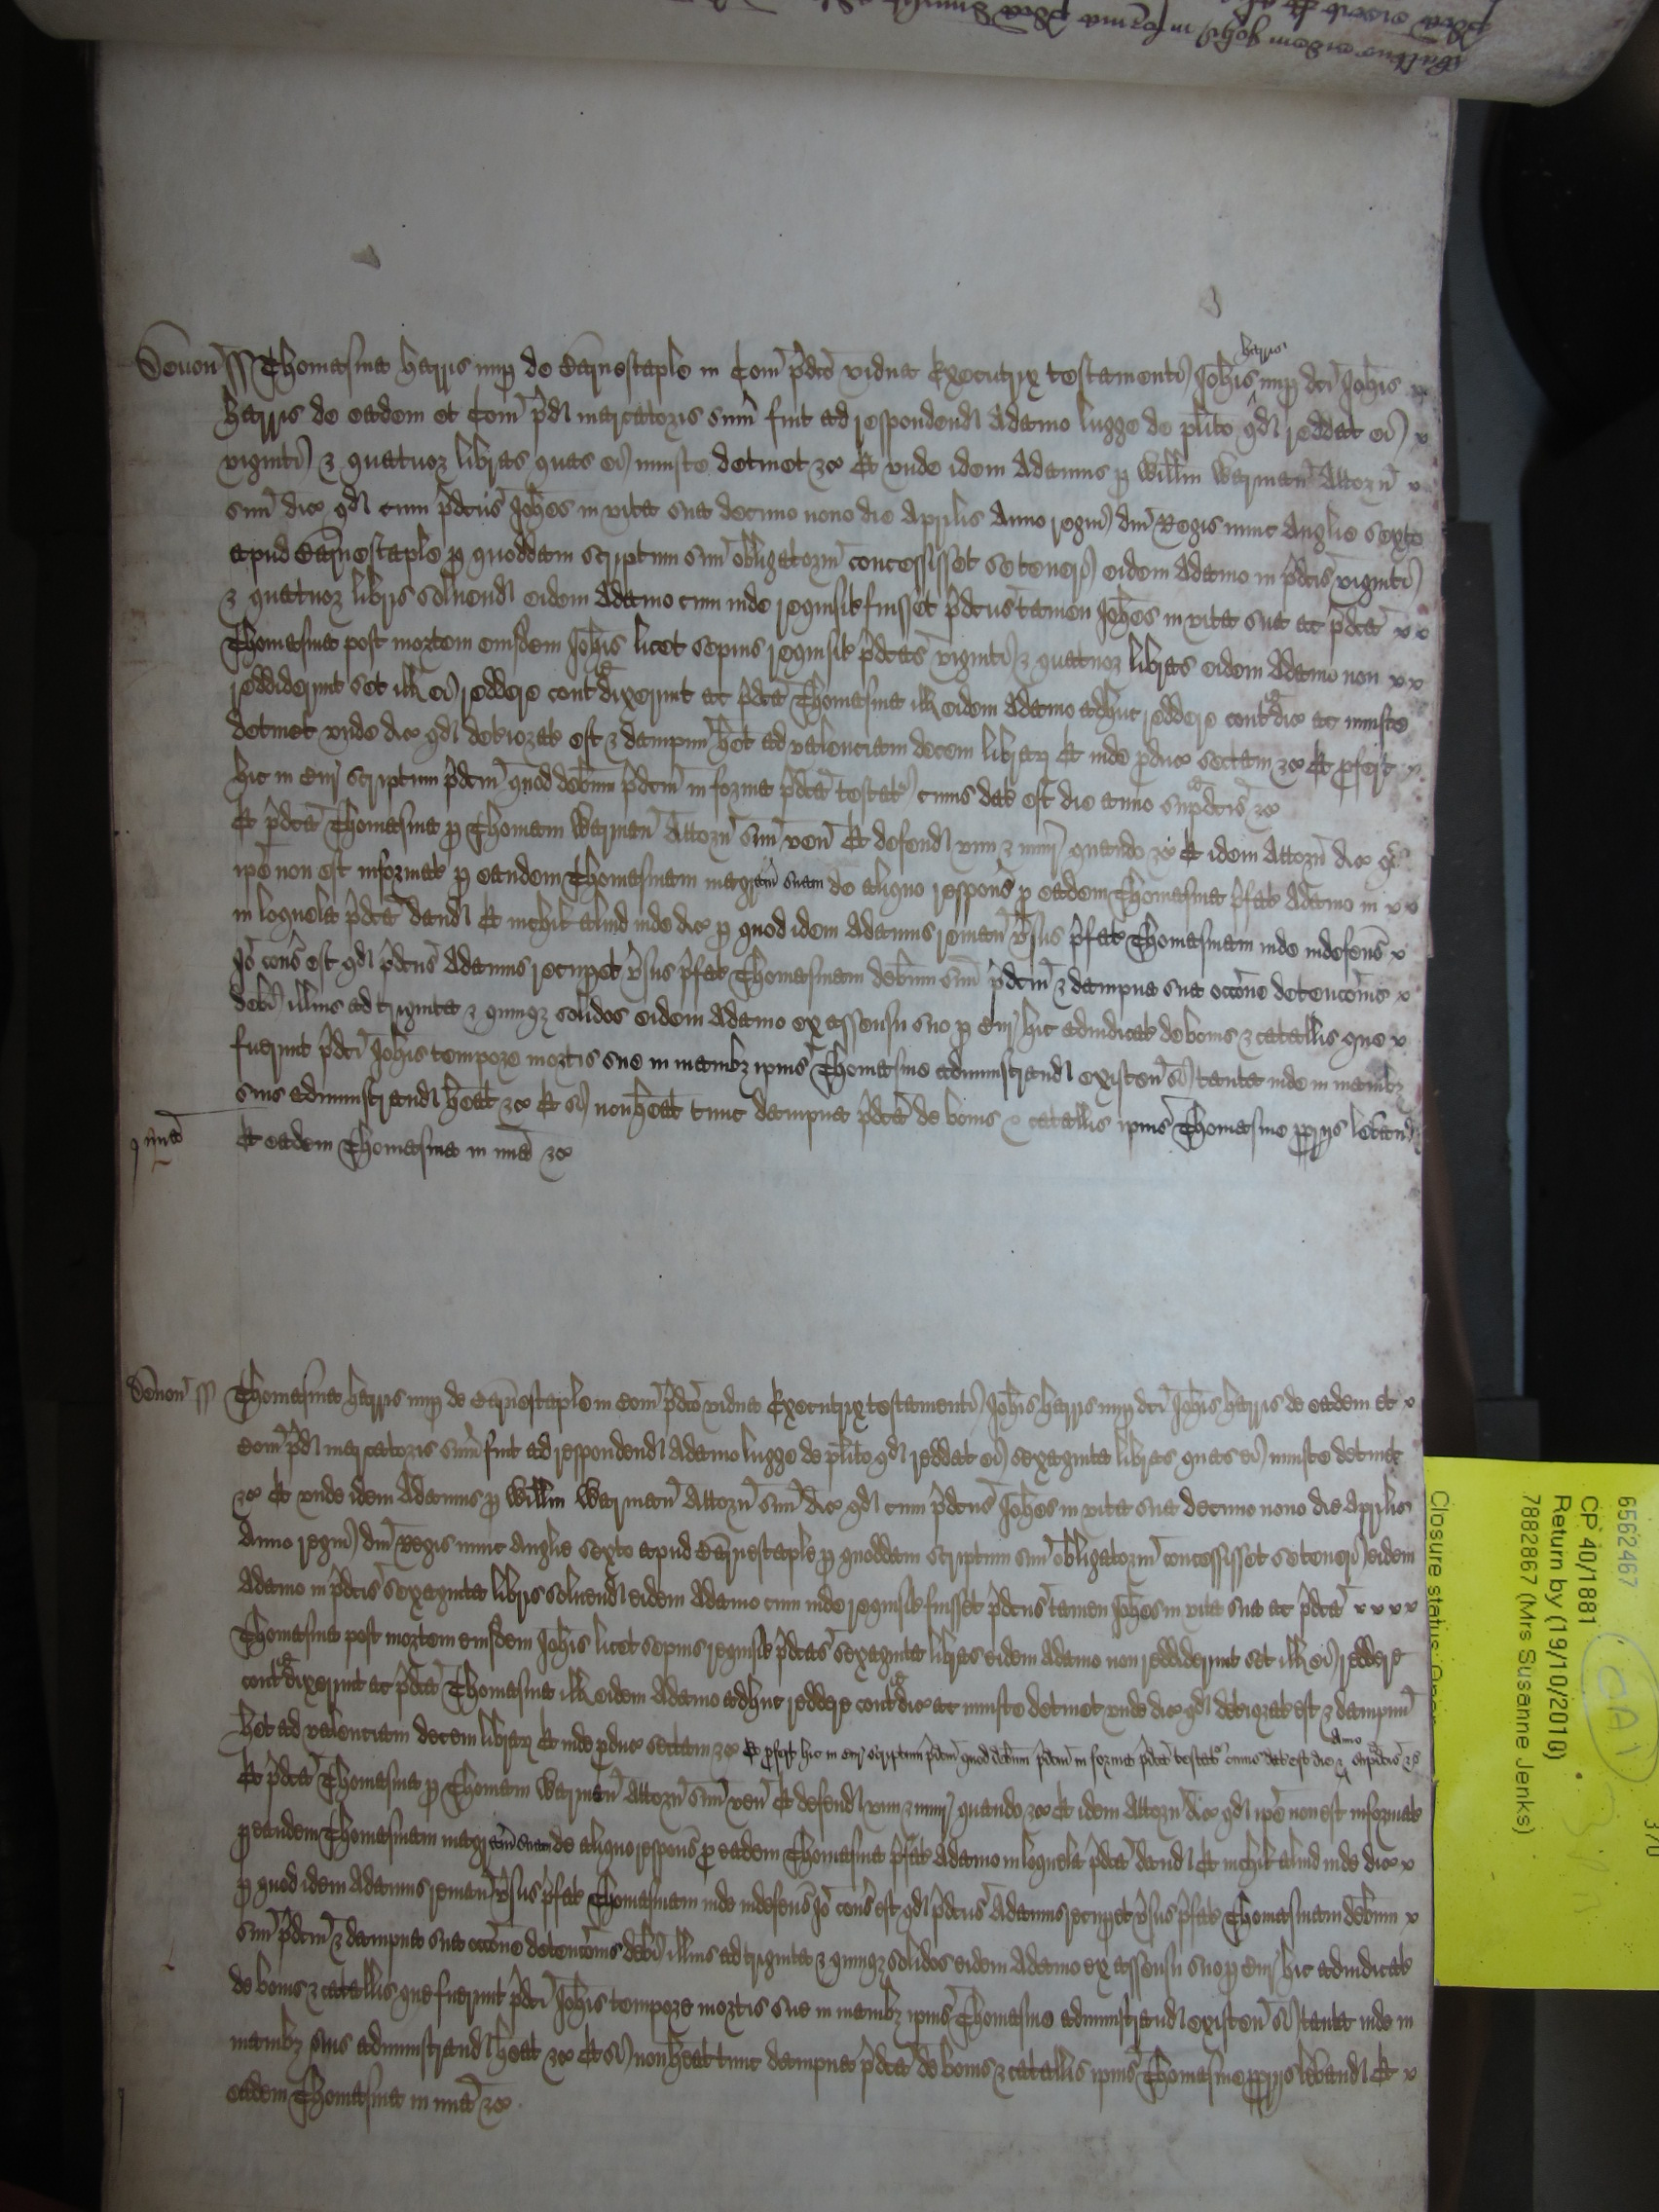 Devon̄ ss Thomasina harris nup de Barnestaple in Com̄ p̄dc̄o vidua Executrix testamenti Joh̄is harris nup dc̄i Joh̄is
harris de eadem et Com̄ p̄d mercatoris sum̄ fuit ad respondend Adamo lugge de pl̄ito qd reddat ei
viginti & quatuor libras quas ei iniuste detinet &c Et vnde idem Adamus p Will̄m Warman̄ Attorn̄
suū dic̄ qd cum p̄dc̄us Joh̄es in vita sua decimo nono die Aprilis Anno regni dn̄i Regis nunc Anglie sexto
apud Barnestaple p quoddam scriptum suū obligatoriū concessisset se teneri eidem Adamo in p̄dc̄is viginti
& quatuor libris soluend eidem Adamo cum inde requisit fuisset p̄dc̄us tamen Joh̄es in vita sua ac p̄dc̄a
Thomasina post mortem eiusdem Joh̄is licet sepius requisit p̄dc̄as viginti & quatuor libras eidem Adamo non
reddiderunt set ill ei reddere contᵃdixerunt ac p̄dc̄a Thomasina ill eidem Adamo adhuc reddere contᵃdic̄ ac iniuste
detinet vnde dic̄ qd deteriorat est & dampnū h̄et ad valenciam decem librar Et inde produc̄ sectam &c Et profert
hic in Cur scriptum p̄dc̄m quod debitum p̄dc̄m in forma p̄dc̄a testat cuius dat est die anno supᵃdc̄is &c
Et p̄dc̄a Thomasina p Thomam Warman̄ Attorn̄ suū ven̄ Et defend vim & iniur quando &c Et idem Attorn̄ dic̄ qd
ip̄e non est informat p eandem Thomasinam magr̄am suam de aliquo respons̄ p eadem Thomasina p̄fat Adamo in
in loquela p̄dc̄a dand Et nichil aliud inde dic̄ p quod idem Adamus reman̄ v̄sus p̄fat Thomasinam inde indefens̄
Iō cons̄ est qd p̄dc̄us Adamus recuperet v̄sus p̄fat Thomasinam debitum suū p̄dc̄m & dampna sua occ̄one detenc̄onis
debiti illius ad triginta & quinqz solidos eidem Adamo ex assensu suo p Cur hic adiudicat de bonis & catallis que
fuerunt p̄dc̄i Joh̄is tempore mortis sue in manibz ipius Thomasine administrand existen̄ si tanta inde in manibz
suis administrand h̄eat &c Et si non h̄eat tunc dampna p̄dc̄a de bonis & catallis ipius Thomasine pprijs levand
Et eadem Thomasina in mīa &c
Devon̄ ss Thomasina harris nup de Barnestaple in Com̄ p̄dc̄o vidua Executrix testamenti Joh̄is harris nup dc̄i Joh̄is harris de eadem et
Com̄ p̄d mercatoris sum̄ fuit ad respondend Adamo lugge de pl̄ito qd reddat ei sexaginta libras quas ei iniuste detinet
&c Et vnde idem Adamus p Will̄m Warman̄ Attorn̄ suū dic̄ qd cum p̄dc̄us Joh̄es in vita sua decimo nono die Aprilis
Anno regni dn̄i Regis nunc Anglie sexto apud Barnestaple p quoddam scriptum suū obligatoriū concessisset se teneri eidem
Adamo in p̄dc̄is sexaginta libris soluend eidem Adamo cum inde requisit fuisset p̄dc̄us tamen Joh̄es in vita sua ac p̄dc̄a
Thomasina post mortem eiusdem Joh̄is licet sepius requisit p̄dc̄as sexaginta libras eidem Adamo non reddiderunt set ill ei reddere
contᵃdixerunt ac p̄dc̄a Thomasina ill eidem Adamo adhuc reddere contᵃdic̄ ac iniuste detinet vnde dic̄ qd deteriorat est & dampnū
h̄et ad valenciam decem librar Et inde produc̄ sectam &c Et profert hic in Cur scriptum p̄dc̄m quod debitum p̄dc̄m in forma p̄dc̄a testat cuius dat est die & Anno supᵃdc̄is &c
Et p̄dc̄a Thomasina p Thomam Warman̄ Attorn̄ suū ven̄ Et defend vim & iniur quando &c Et idem Attorn̄ dic̄ qd ip̄e non est informat
p eandem Thomasinam magr̄am suam de aliquo respons̄ p eadem Thomasina p̄fat Adamo in loquela p̄dc̄a dand Et nichil aliud inde dic̄
p quod idem Adamus reman̄ v̄sus p̄fat Thomasinam inde indefens̄ Iō cons̄ est qd p̄dc̄us Adamus recuperet v̄sus p̄fat Thomasinam debitum
suū p̄dc̄m & dampna sua occ̄one detenc̄onis debiti illius ad triginta & quinqz solidos eidem Adamo ex assensu suo p Cur hic adiudicat
de bonis & catallis que fuerunt p̄dc̄i Joh̄is tempore mortis sue in manibz ipius Thomasine administrand existen̄ si tanta inde in
manibz suis administrand h̄eat &c Et si non h̄eat tunc dampna p̄dc̄a de bonis & catallis ipius Thomasine pprijs levand Et
eadem Thomasina in mīa &c
6562467
CP 40/1881
Return by (19/10/2010)
7882867 (Mrs Susanne Jenks)
Closure status: Open